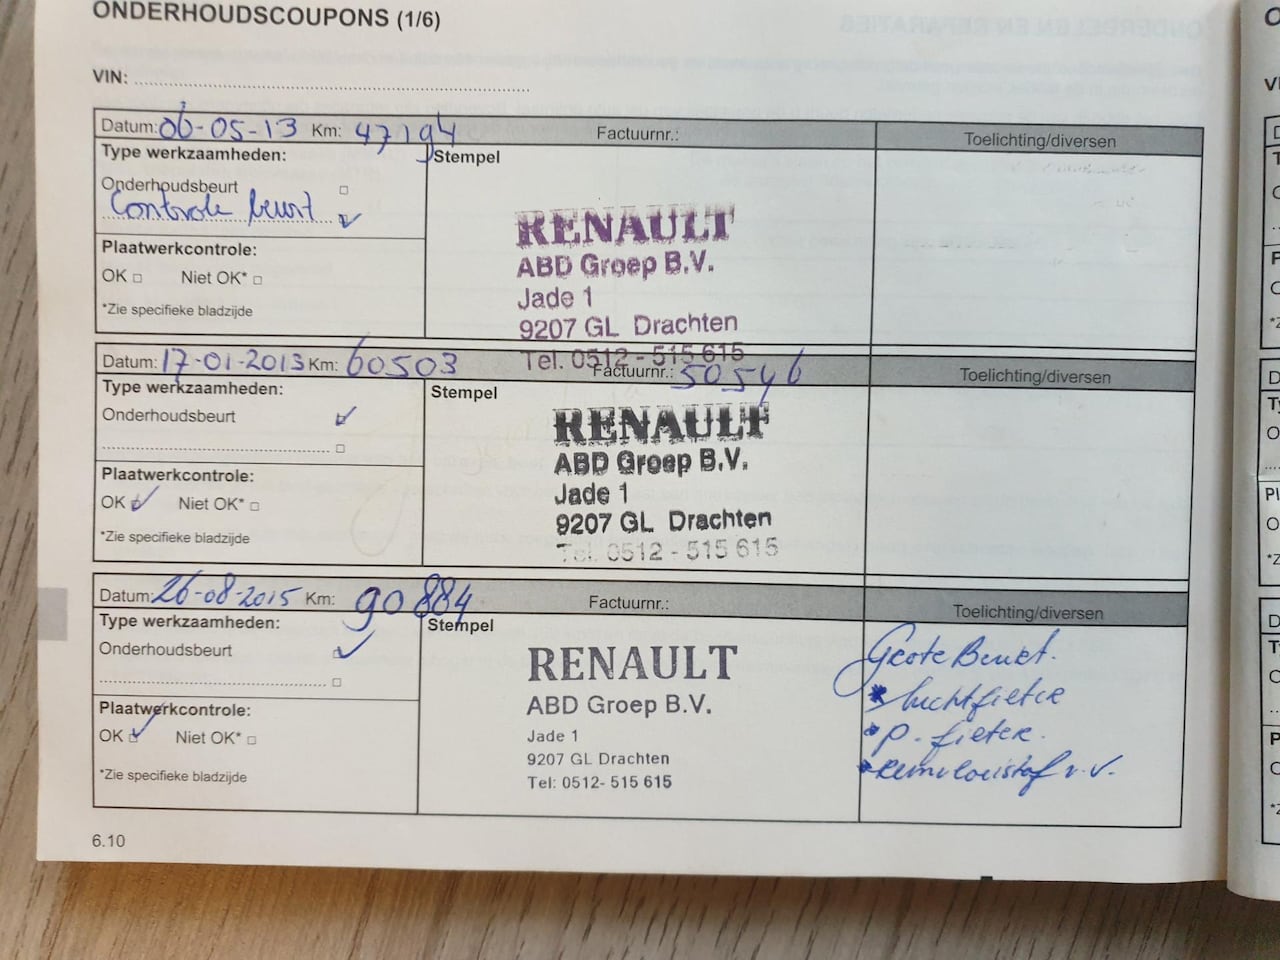 ONDERHOUDSCOUPONS (1/6)
VIN:
Datum: 06-05-13 Km: 47194 Factuurnr.: Toelichting/diversen
Type werkzaamheden: Stempel
Onderhoudsbeurt
Controle beurt
Plaatwerkcontrole:
OK Niet OK*
*Zie specifieke bladzijde
RENAULT
ABD Groep B.V.
Jade 1
9207 GL Drachten
Tel. 0512 - 515 615
Datum: 17-01-2013 Km: 60503 Factuurnr.: 50546 Toelichting/diversen
Type werkzaamheden: Stempel
Onderhoudsbeurt
Plaatwerkcontrole:
OK Niet OK*
*Zie specifieke bladzijde
RENAULT
ABD Groep B.V.
Jade 1
9207 GL Drachten
Tel. 0512 - 515 615
Datum: 26-08-2015 Km: 90884 Factuurnr.: Toelichting/diversen
Type werkzaamheden: Stempel
Onderhoudsbeurt
Plaatwerkcontrole:
OK Niet OK*
*Zie specifieke bladzijde
RENAULT
ABD Groep B.V.
Jade 1
9207 GL Drachten
Tel: 0512- 515 615
Grote Beurt.
* luchtfilter
* p. filter.
* remvloeistof v.v.
6.10